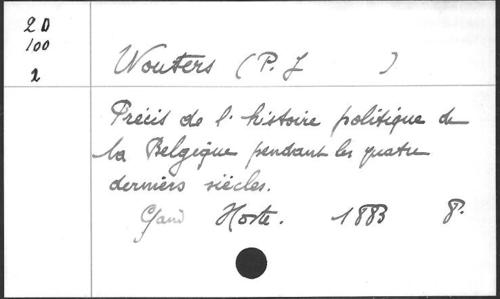 2D
100
2
Wouters (P. J )
Précis de l'histoire politique de
la Belgique pendant les quatre
derniers siècles.
Gand Hoste. 1883 8°.